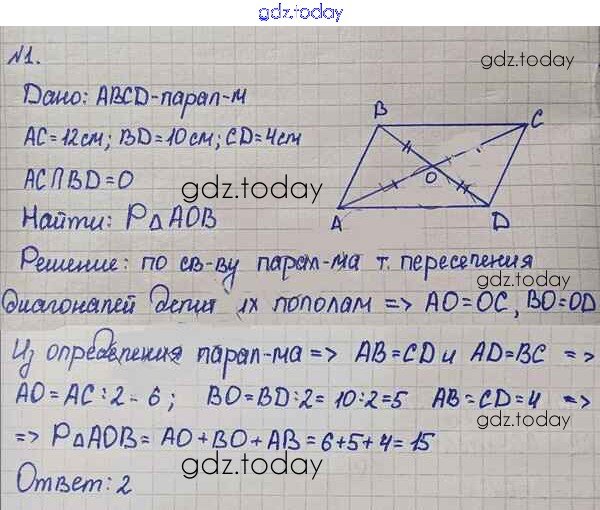 gdz.today
№1.
gdz.today
Дано: ABCD-парал-м
AC=12см; BD=10см; CD=4см
B
C
AC∩BD=O
gdz.today
O
Найти: P△AOB
A
D
Решение: по св-ву парал-ма т. пересечения
gdz.today
диагоналей делит их пополам => AO=OC, BO=OD
Из определения парал-ма => AB=CD и AD=BC =>
gdz.today
AO=AC:2-6; BO=BD:2=10:2=5 AB=CD=4 =>
=> P△AOB= AO+BO+AB=6+5+4=15
gdz.today
gdz.today
Ответ: 2